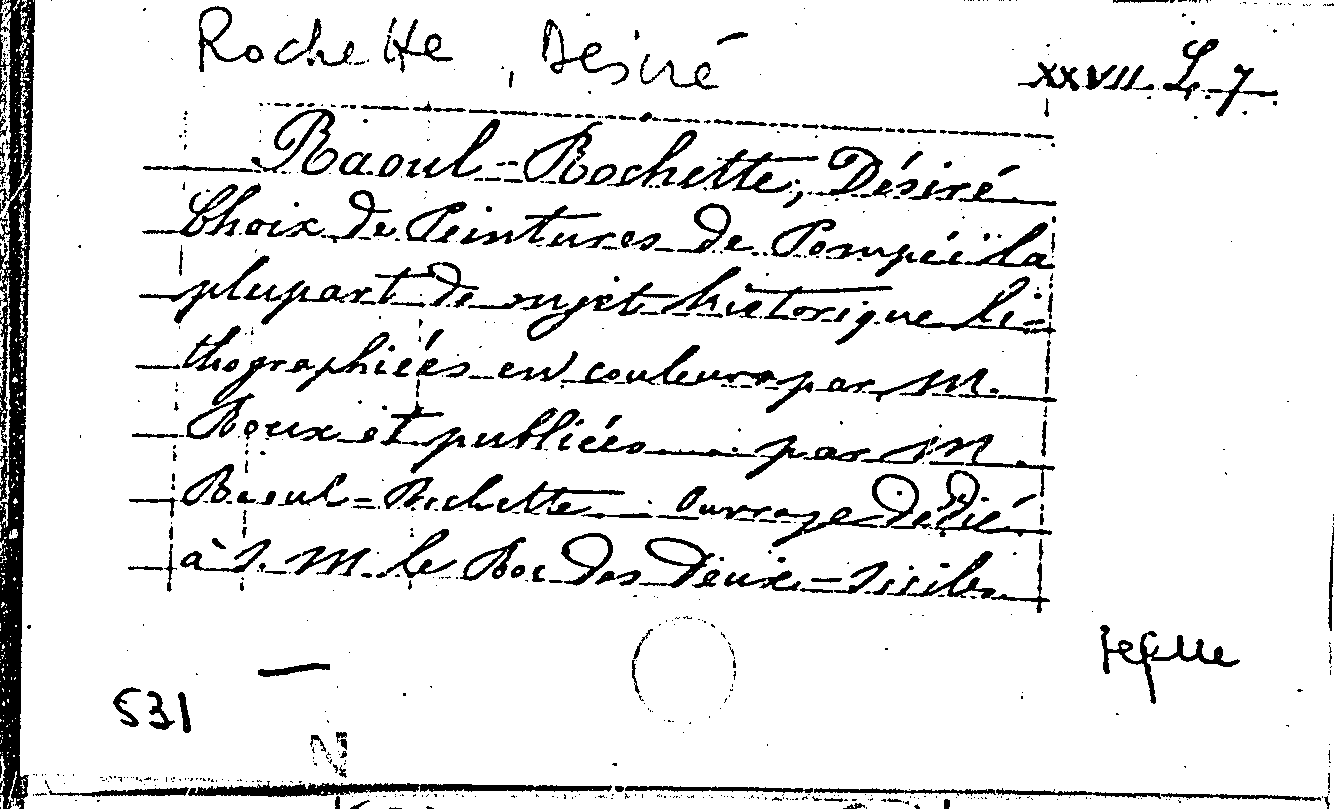 Rochette, Désiré
XXVII. L. 7
Raoul-Rochette, Désiré.
Choix de Peintures de Pompéi la
plupart de sujet historique li-
thographiées en couleurs par M.
Roux et publiées ... par M.
Raoul-Rochette. Ouvrage dédié
à S. M. le Roi des Deux-Siciles.
segue
531
N